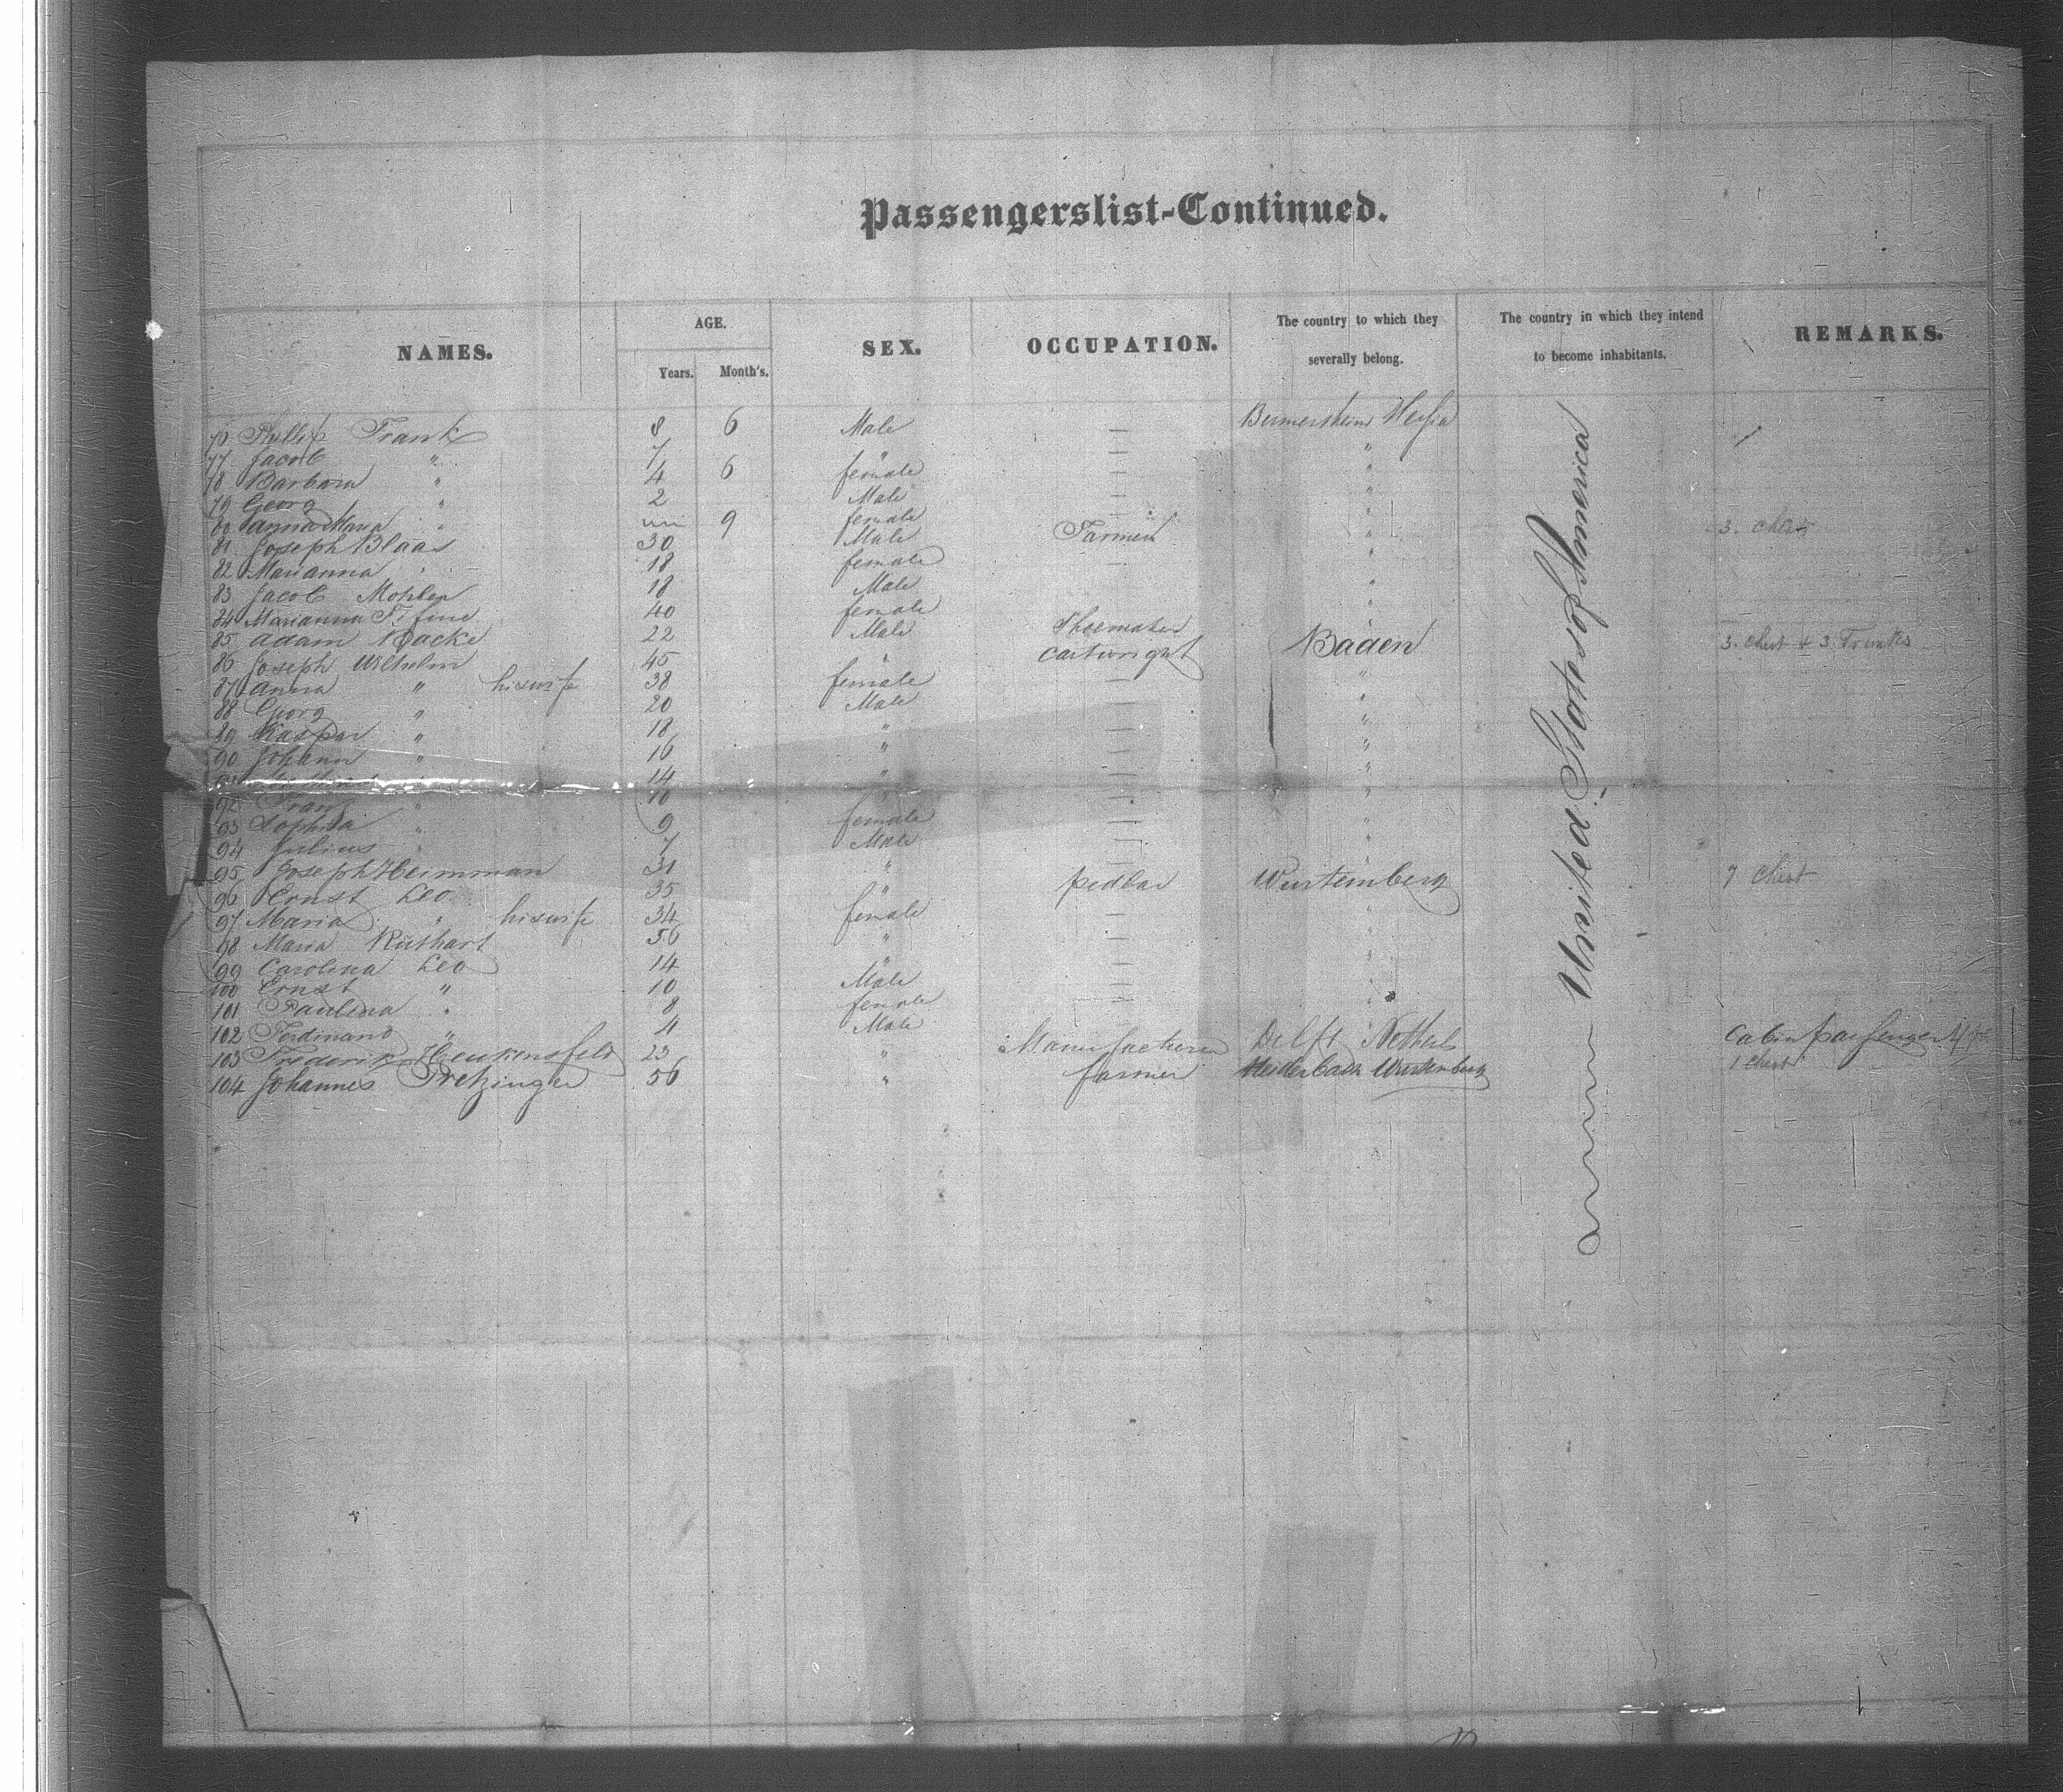 Passengerslist-Continued.
NAMES. AGE. SEX. OCCUPATION. The country to which they severally belong. The country in which they intend to become inhabitants. REMARKS.
Years. Month's.
76 Phillip Frank 8 6 Male — Bermersheim Hessia
77 Jacob " 7 " — "
78 Barbara " 4 6 female — "
79 Georg " 2 Male — "
80 Anna Maria " 9 female — "
81 Joseph Blaas 30 Male Farmer " 3. Chest
82 Marianna " 18 female — "
83 Jacob Mohler 18 Male "
84 Marianna 40 female "
85 Adam Backe 22 Male Shoemaker
86 Joseph Wilhelm 45 " Cartwright Baden 3. Chest + 3 Trunks
87 Anna " his wife 38 female — "
88 Georg " 20 Male — "
89 Kaspar " 18 " — "
90 Johann " 16 " — "
14 " — "
92 Franz " 10 " — "
93 Sophia " 9 female — "
94 Julius " 7 Male — "
95 Joseph Heimman 31 " — "
96 Ernst Leo 35 " pedlar Wurtemberg 7 Chest
97 Maria " his wife 34 female — "
98 Maria Ruthart 56 " — "
99 Carolina Leo 14 " — "
100 Ernst " 10 Male — "
101 Paulina " 8 female — "
102 Ferdinand " 4 Male
103 Frederik Heukensfeld 23 " Manufacturer Delft Netherl Cabin passenger
104 Johannes Pretzinger 56 " farmer Heiderbach Wurtenberg 1 Chest
United States of America